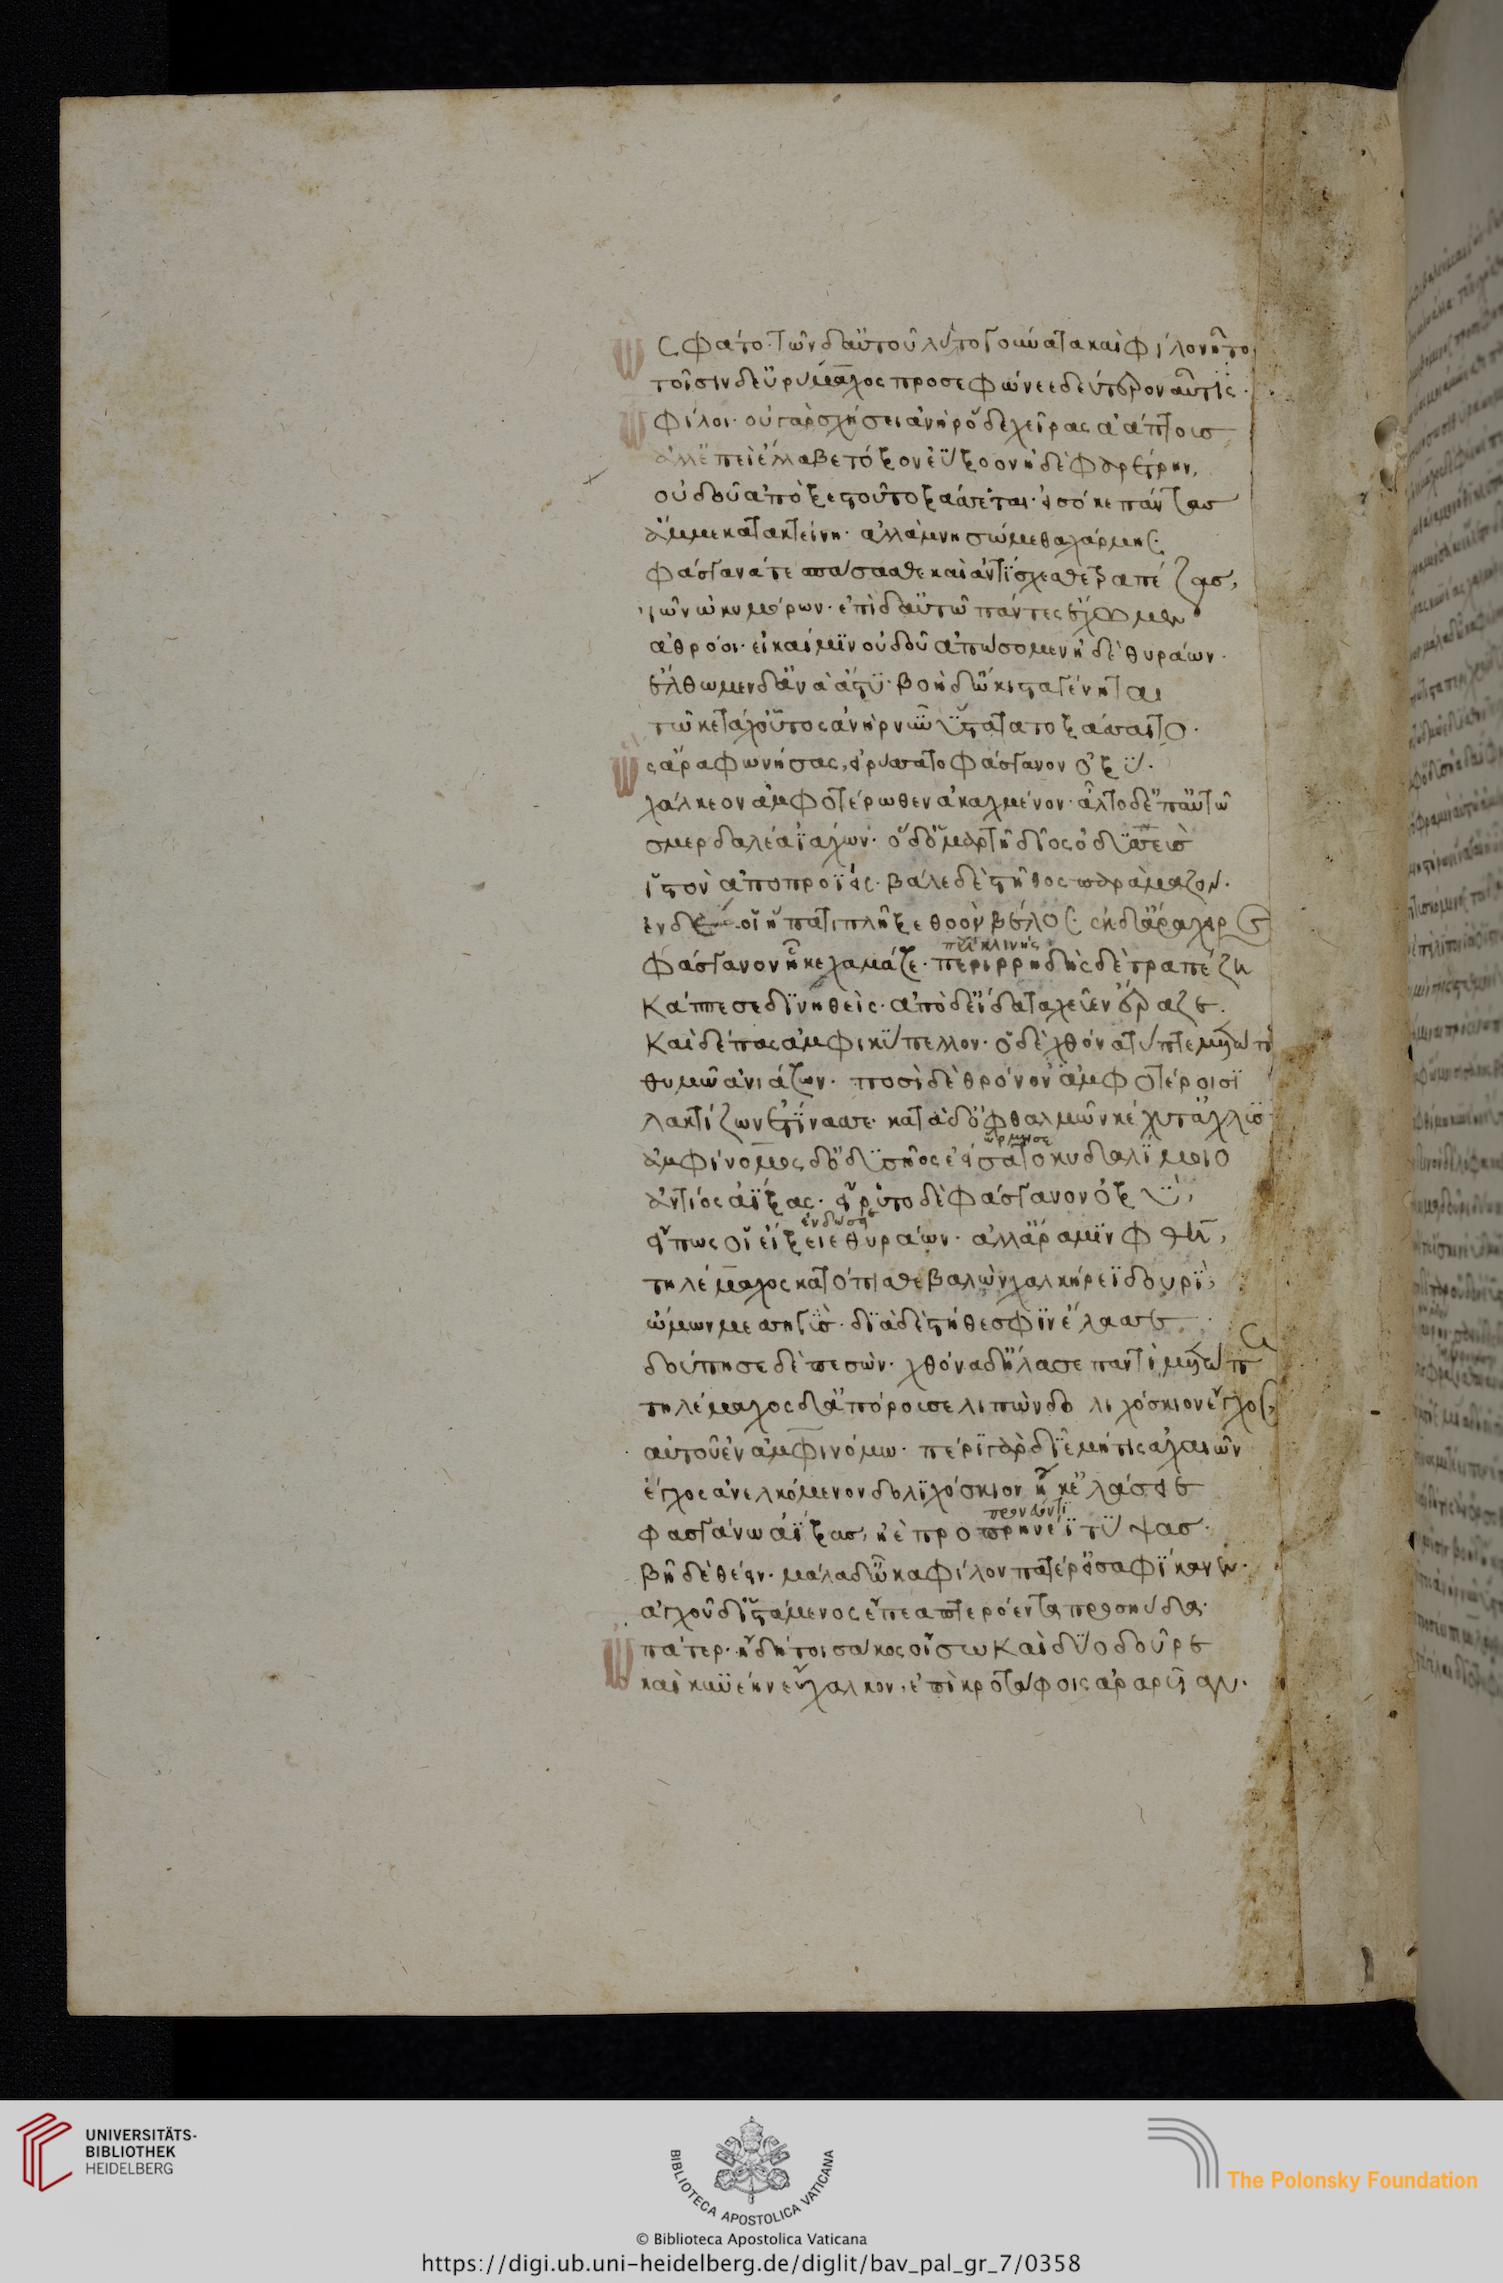 Ὣς φάτο· τῶν δ' αὐτοῦ λύτο γούνατα καὶ φίλον ἦτορ
τοῖσιν δ' εὐρύμαχος προσεφώνεε δεύτερον αὖτις·
Ὦ φίλοι· οὐ γὰρ σχήσει ἀνὴρ ὅδε χεῖρας ἀάπτους
ἀλλ' ἐπεὶ ἔλλαβε τόξον ἐΰξοον ἠδὲ φαρέτρην,
οὐδοῦ ἀπὸ ξεστοῦ τοξάσσεται· εἰσόκε πάντας
ἄμμε κατακτείνῃ· ἀλλὰ μνησώμεθα χάρμης·
φάσγανά τε σπάσσασθε καὶ ἀντίσχεσθε τραπέζας,
ἰῶν ὠκυμόρων· ἐπὶ δ' αὐτῷ πάντες ἔχωμεν
ἀθρόοι· εἰ καί μιν οὐδοῦ ἀπώσομεν ἠδὲ θυράων·
ἔλθωμεν δ' ἀνὰ ἄστυ· βοὴ δ' ὤκιστα γένηται
τῷ κε τάχ' οὗτος ἀνὴρ νῦν ὕστατα τοξάσσαιτο·
Ὣς ἄρα φωνήσας, εἰρύσσατο φάσγανον ὀξύ·
χάλκεον ἀμφοτέρωθεν ἀκαχμένον· ἆλτο δ' ἐπ' αὐτῷ
σμερδαλέα ἰάχων· ὁ δ' ὁμαρτῆ δῖος ὀδυσσεὺς
ἰὸν ἀποπροϊείς· βάλε δὲ στῆθος παρὰ μαζόν·
ἐν δέ οἱ ἥπατι πλῆξε θοὸν βέλος· ἐκ δ' ἄρα χειρὸς
περικλινής
φάσγανον ἧκε χαμάζε· περιρρηδὴς δὲ τραπέζῃ
κάππεσε δινηθείς· ἀπὸ δ' εἴδατα χεῦεν ἔραζε·
καὶ δέπας ἀμφικύπελλον· ὁ δὲ χθόνα τύπτε μετώπῳ
θυμῷ ἀνιάζων· ποσὶ δὲ θρόνον ἀμφοτέροισι
λακτίζων ἐτίνασσε· κατὰ δ' ὀφθαλμῶν κέχυτ' ἀχλύς·
ὥρμησε
ἀμφίνομος δ' ὀδυσῆος ἐείσατο κυδαλίμοιο
ἀντίος ἀΐξας· εἴρυτο δὲ φάσγανον ὀξύ,
εἴπως οἱ εἴξειε θυράων· ἀλλ' ἄρα μιν φθῆ,
τηλέμαχος κατόπισθε βαλὼν χαλκήρεϊ δουρί,
ὤμων μεσσηγύς· διὰ δὲ στήθεσφιν ἔλασσε
δούπησε δὲ πεσών· χθόνα δ' ἤλασε παντὶ μετώπῳ
τηλέμαχος δ' ἀπόρουσε λιπὼν δολιχόσκιον ἔγχος,
αὐτοῦ ἐν ἀμφινόμῳ· περὶ γὰρ δίε μήτις ἀχαιῶν
ἔγχος ἀνελκόμενον δολιχόσκιον ἢ κ' ἐλάσειε
φασγάνῳ ἀΐξας, ἠὲ προπρηνέϊ τύψας·
βῆ δὲ θέειν· μάλα δ' ὦκα φίλον πατέρ' εἰσαφίκανεν·
ἀγχοῦ δ' ἱστάμενος ἔπεα πτερόεντα προσηύδα·
Ὦ πάτερ· ἤδη τοι σάκος οἴσω καὶ δύο δοῦρε
καὶ κυνέην εὔχαλκον, ἐπὶ κροτάφοις ἀραρυῖαν·
UNIVERSITÄTS-
BIBLIOTHEK
HEIDELBERG
BIBLIOTECA APOSTOLICA VATICANA
The Polonsky Foundation
© Biblioteca Apostolica Vaticana
https://digi.ub.uni-heidelberg.de/diglit/bav_pal_gr_7/0358